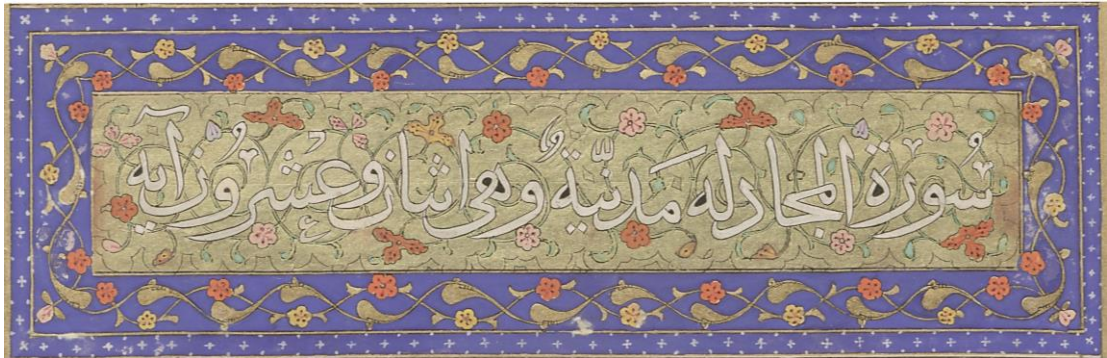 سُورَة المجادله مَدَنيّةٌ وهى اثنان وعشرُون آيه